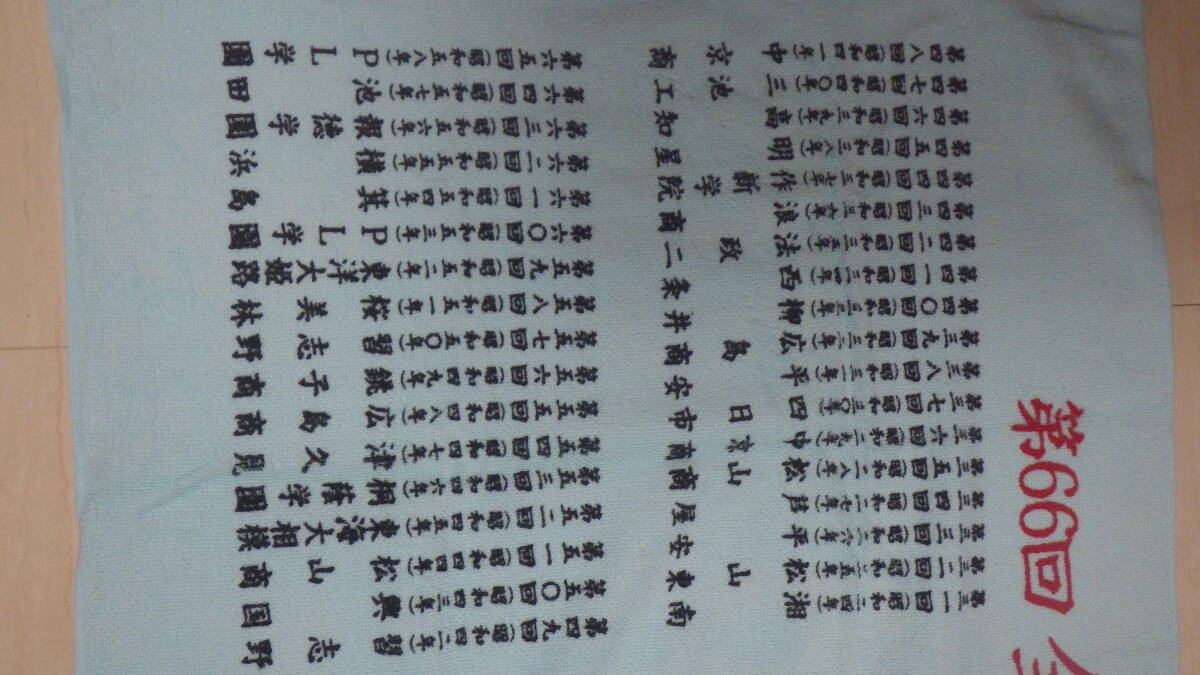 第66回 全
第三一回(昭和二四年)湘南
第三二回(昭和二五年)松山東
第三三回(昭和二六年)平安
第三四回(昭和二七年)芦屋
第三五回(昭和二八年)松山商
第三六回(昭和二九年)中京商
第三七回(昭和三〇年)四日市
第三八回(昭和三一年)平安
第三九回(昭和三二年)広島商
第四〇回(昭和三三年)柳井
第四一回(昭和三四年)西条
第四二回(昭和三五年)法政二
第四三回(昭和三六年)浪商
第四四回(昭和三七年)作新学院
第四五回(昭和三八年)明星
第四六回(昭和三九年)高知
第四七回(昭和四〇年)三池工
第四八回(昭和四一年)中京商
第四九回(昭和四二年)習志野
第五〇回(昭和四三年)興国
第五一回(昭和四四年)松山商
第五二回(昭和四五年)東海大相模
第五三回(昭和四六年)桐蔭学園
第五四回(昭和四七年)津久見
第五五回(昭和四八年)広島商
第五六回(昭和四九年)銚子商
第五七回(昭和五〇年)習志野
第五八回(昭和五一年)桜美林
第五九回(昭和五二年)東洋大姫路
第六〇回(昭和五三年)PL学園
第六一回(昭和五四年)箕島
第六二回(昭和五五年)横浜
第六三回(昭和五六年)報徳学園
第六四回(昭和五七年)池田
第六五回(昭和五八年)PL学園